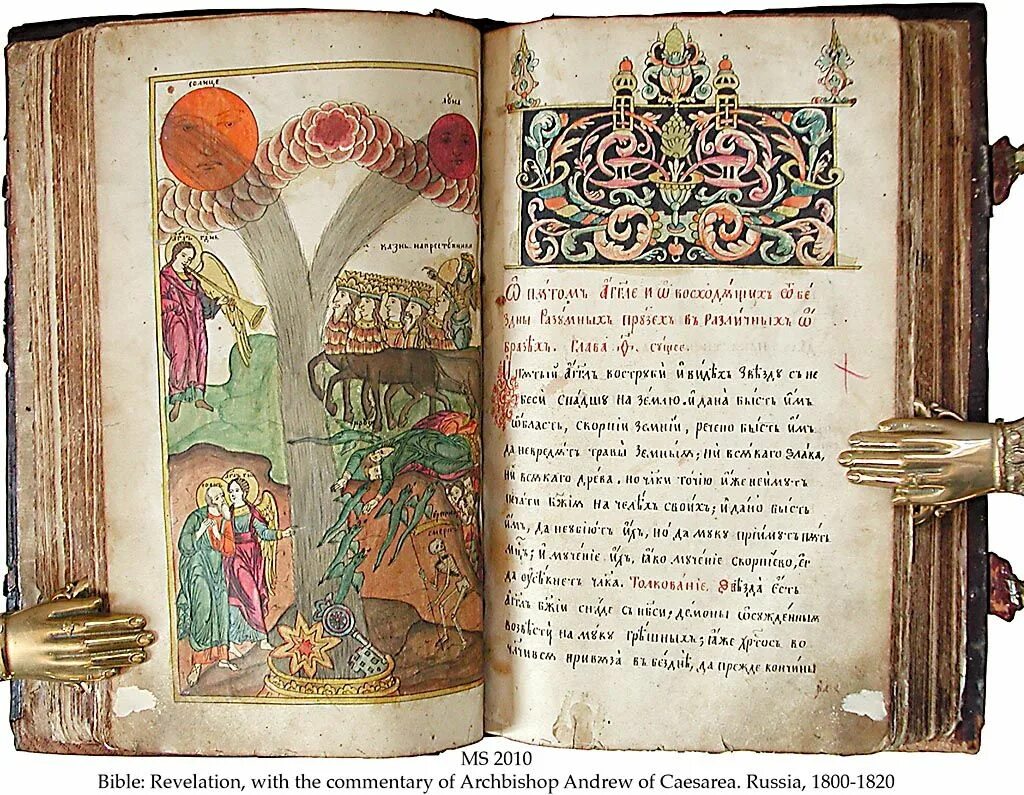 солнце
луна
казнь напреступники
Ѡ пѧтомъ Аггле и ѡ восходѧщихъ ѿ бе
здны разумныхъ прузехъ въ различныхъ ѡ
бразѣхъ. Глава .ѳ. сущее.
И пѧтый агглъ воструби и видѣхъ звѣзду съ не
беси спадшу на землю. и дана бысть имъ
ѡбласть, скорпїи земнїи, речено бысть имъ
да невредѧтъ травы земныѧ; ни всѧкаго злака,
ни всѧкаго древа, но чл҃ки точїю иже неимутъ
печати бж҃їѧ на челѣхъ своихъ; и дано бысть
имъ, да неубїютъ ихъ, но да муку прїимутъ пѧть
мц҃ъ; и мученїе ихъ, ꙗко мученїе скорпїево, ег
да ѹсѣкнетъ чл҃ка. Толкованїе. Звѣзда есть
агглъ бж҃їи сниде съ нб҃си; демоны ѡсужденныѧ
возвести на муку грѣшныхъ; ꙗже хрⷭ҇тосъ во
чл҃чивсѧ привѧза въ безднѣ, да прежде кончины
MS 2010
Bible: Revelation, with the commentary of Archbishop Andrew of Caesarea. Russia, 1800-1820